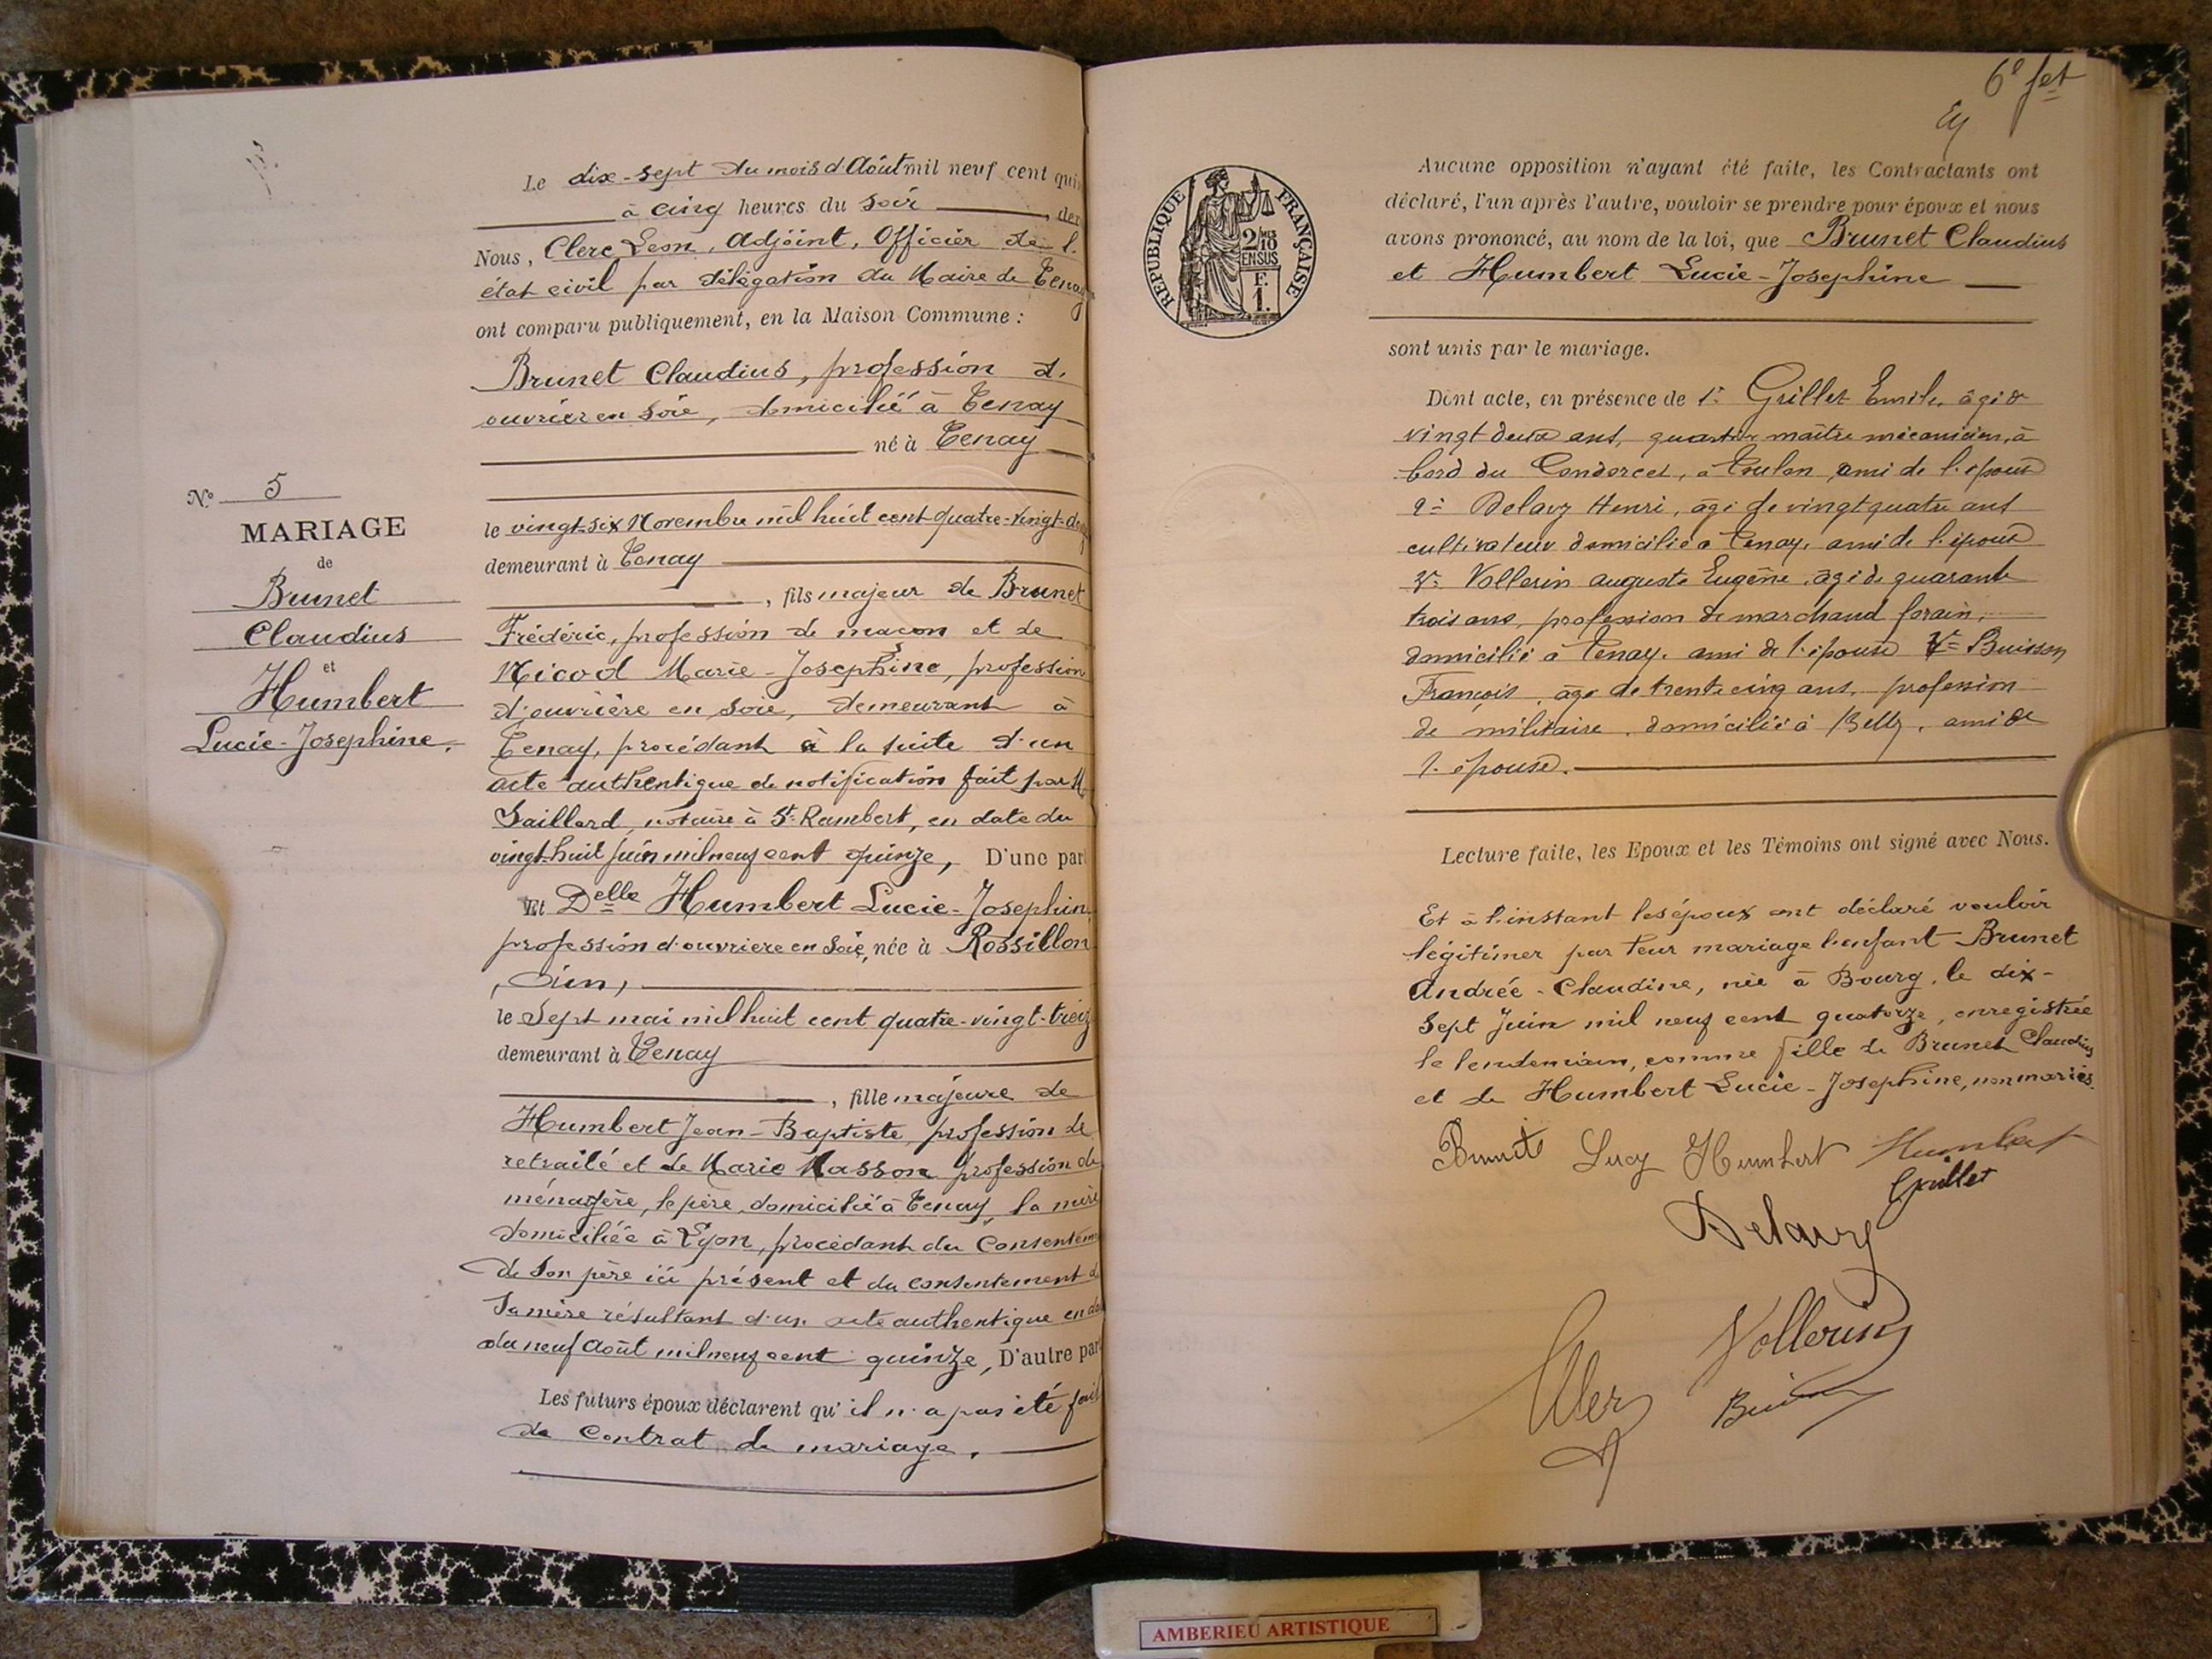 Le dix-sept du mois d'Août mil neuf cent
à cinq heures du soir
Nous, Clerc Leon, Adjoint, Officier de l'
état civil par délégation du Maire de Tenay
ont comparu publiquement, en la Maison Commune :
Brunet Claudius, profession d'
ouvrier en soie, domicilié à Tenay
né à Tenay
le vingt-six Novembre mil huit cent quatre-vingt-
demeurant à Tenay
, fils majeur de Brunet
Frédéric, profession de maçon et de
Nicod Marie-Josephine, profession
d'ouvrière en soie, demeurant à
Tenay, procédant à la suite d'un
acte authentique de notification fait par M
Gaillard, notaire à St Rambert, en date du
vingt-huit juin mil neuf cent quinze, D'une par
Et Delle Humbert Lucie-Josephin
profession d'ouvriere en soie, née à Rossillon
, Ain,
le Sept mai mil huit cent quatre-vingt-treiz
demeurant à Tenay
, fille majeure de
Humbert Jean-Baptiste, profession de
retraité et de Marie Masson profession de
ménagère, le père domicilié à Tenay, la mère
domiciliée à Lyon, procédant du Consentem
de son père ici présent et du consentement d
sa mère résultant d'un acte authentique en da
du neuf Août mil neuf cent quinze, D'autre par
Les futurs époux déclarent qu'il n'a pas été fait
de Contrat de mariage.
N° 5
MARIAGE
de
Brunet
Claudius
et
Humbert
Lucie-Josephine.
6e fet
REPUBLIQUE FRANÇAISE
2/10 EN SUS
F.
1.
Aucune opposition n'ayant été faite, les Contractants ont
déclaré, l'un après l'autre, vouloir se prendre pour époux et nous
avons prononcé, au nom de la loi, que Brunet Claudius
et Humbert Lucie-Josephine
sont unis par le mariage.
Dont acte, en présence de 1° Grillet Emile, âgé de
vingt deux ans, quartier maître mécanicien, à
bord du Condorcet, à Toulon, ami de l'époux
2° Delavy Henri, âgé de vingt quatre ans
cultivateur domicilié à Tenay, ami de l'époux
3° Vollerin Auguste Eugène, âgé de quarante
trois ans, profession de marchand forain,
domicilié à Tenay. ami de l'épouse 4° Buisson
François, âgé de trente cinq ans, profession
de militaire, domicilié à Belley, ami de
l'épouse.
Lecture faite, les Epoux et les Témoins ont signé avec Nous.
Et à l'instant les époux ont déclaré vouloir
légitimer par leur mariage l'enfant Brunet
Andrée-Claudine, née à Bourg, le dix-
sept Juin mil neuf cent quatorze, enregistrée
le lendemain, comme fille de Brunet Claudius
et de Humbert Lucie-Josephine, non mariés.
Brunet Lucy Humbert Humbert
Grillet
Delavy
Vollerin
Clerc
AMBERIEU ARTISTIQUE